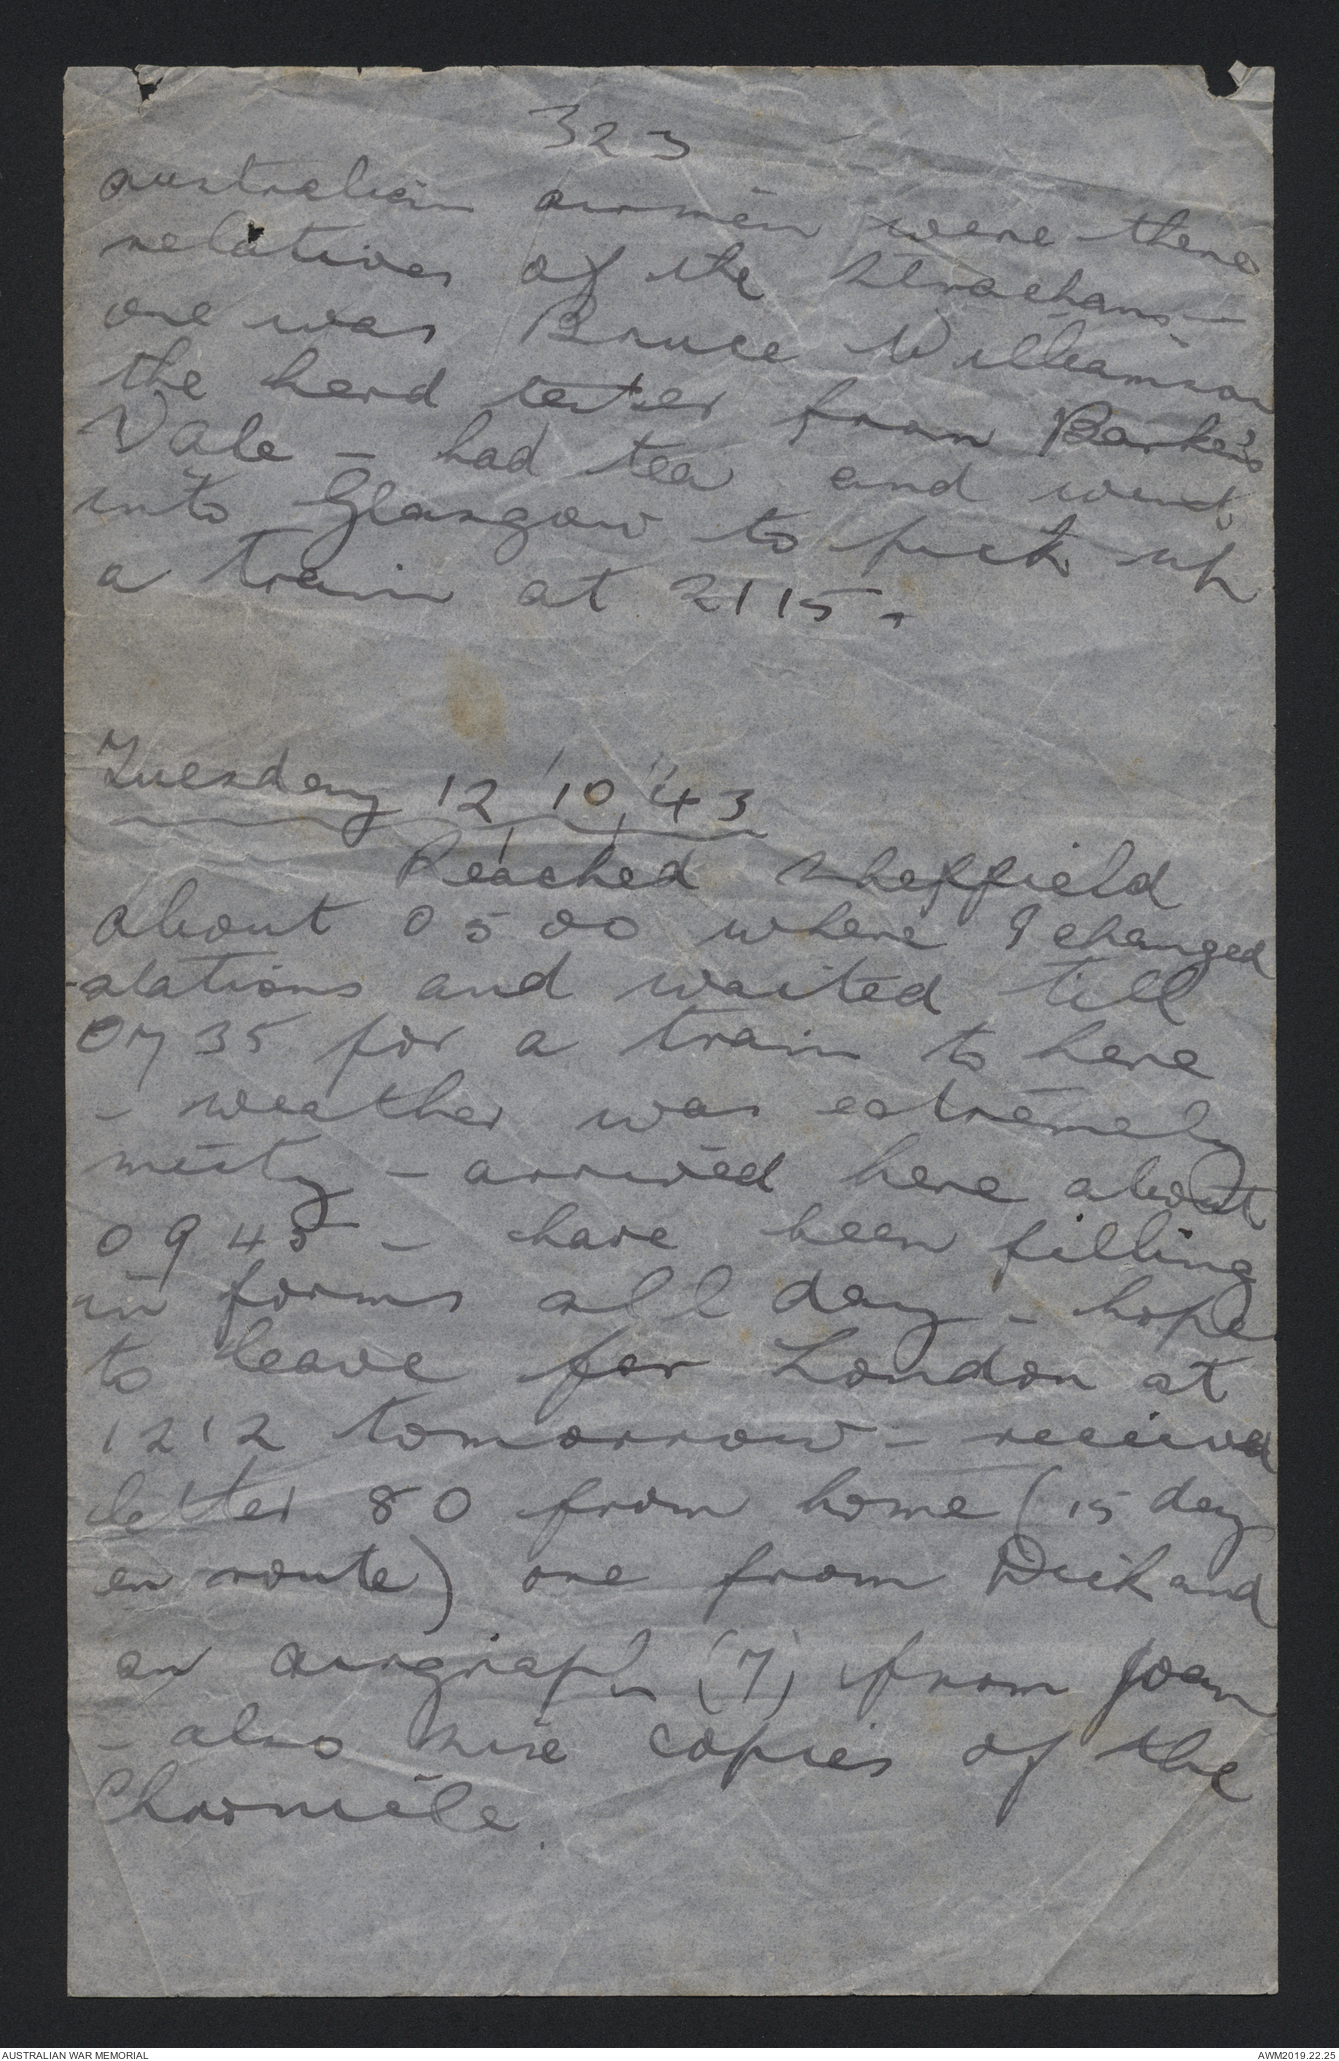 323
australian airmen were there
relatives of the Strachans -
one was Bruce Williamson
the herd tester from Barkers
Vale - had tea and went
into Glasgow to pick up
a train at 2115.
Tuesday 12/10/43
Reached Sheffield
about 0500 where I changed
stations and waited till
0735 for a train to here
- weather was extremely
misty - arrived here about
0945 - have been filling
in forms all day - hope
to leave for London at
1212 tomorrow - received
letter 80 from home (15 day
en route) one from Dick and
an airgraph (7) from Joan
- also nine copies of the
Chronicle.
AUSTRALIAN WAR MEMORIAL
AWM2019.22.25